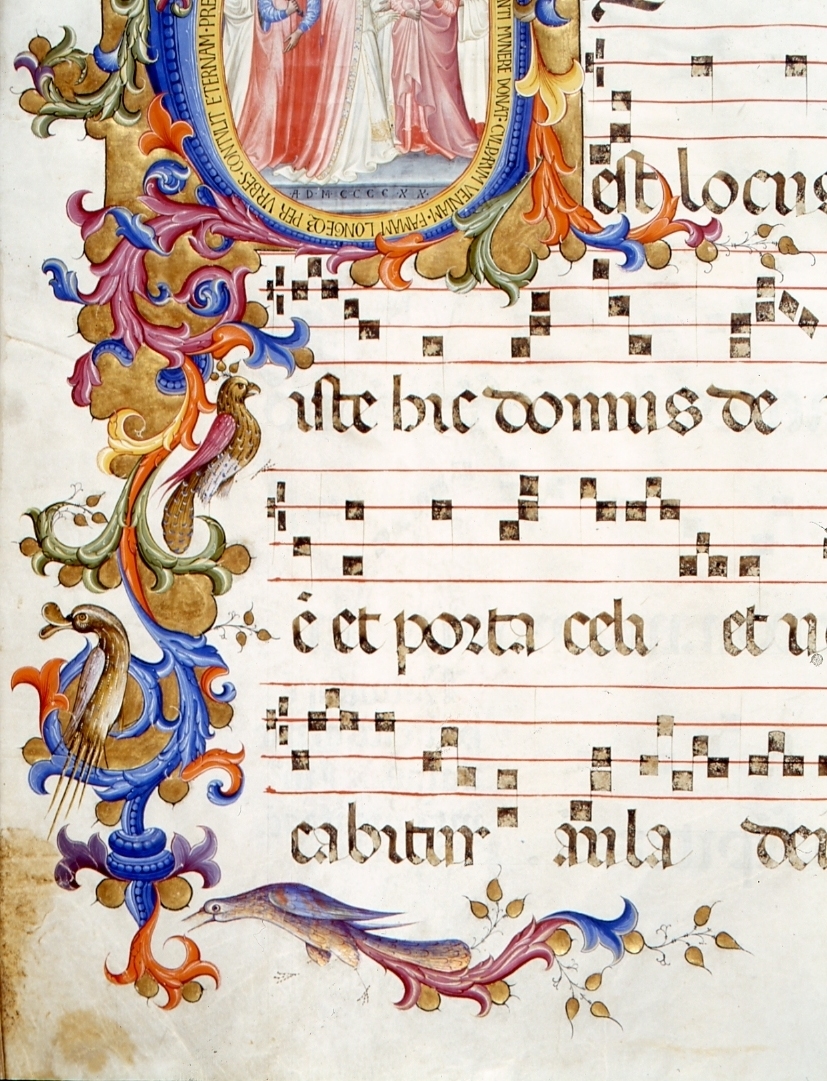 ETERNAM · PRE
VRBES · CONTVLIT
LONGEQZ PER
VENIAM · FAMAM
NTI MVNERE DONAT · CVLPARVM
A D M C C C C X X
est locus
iste hic domus de
ē et porta celi et u
cabitur aula dei